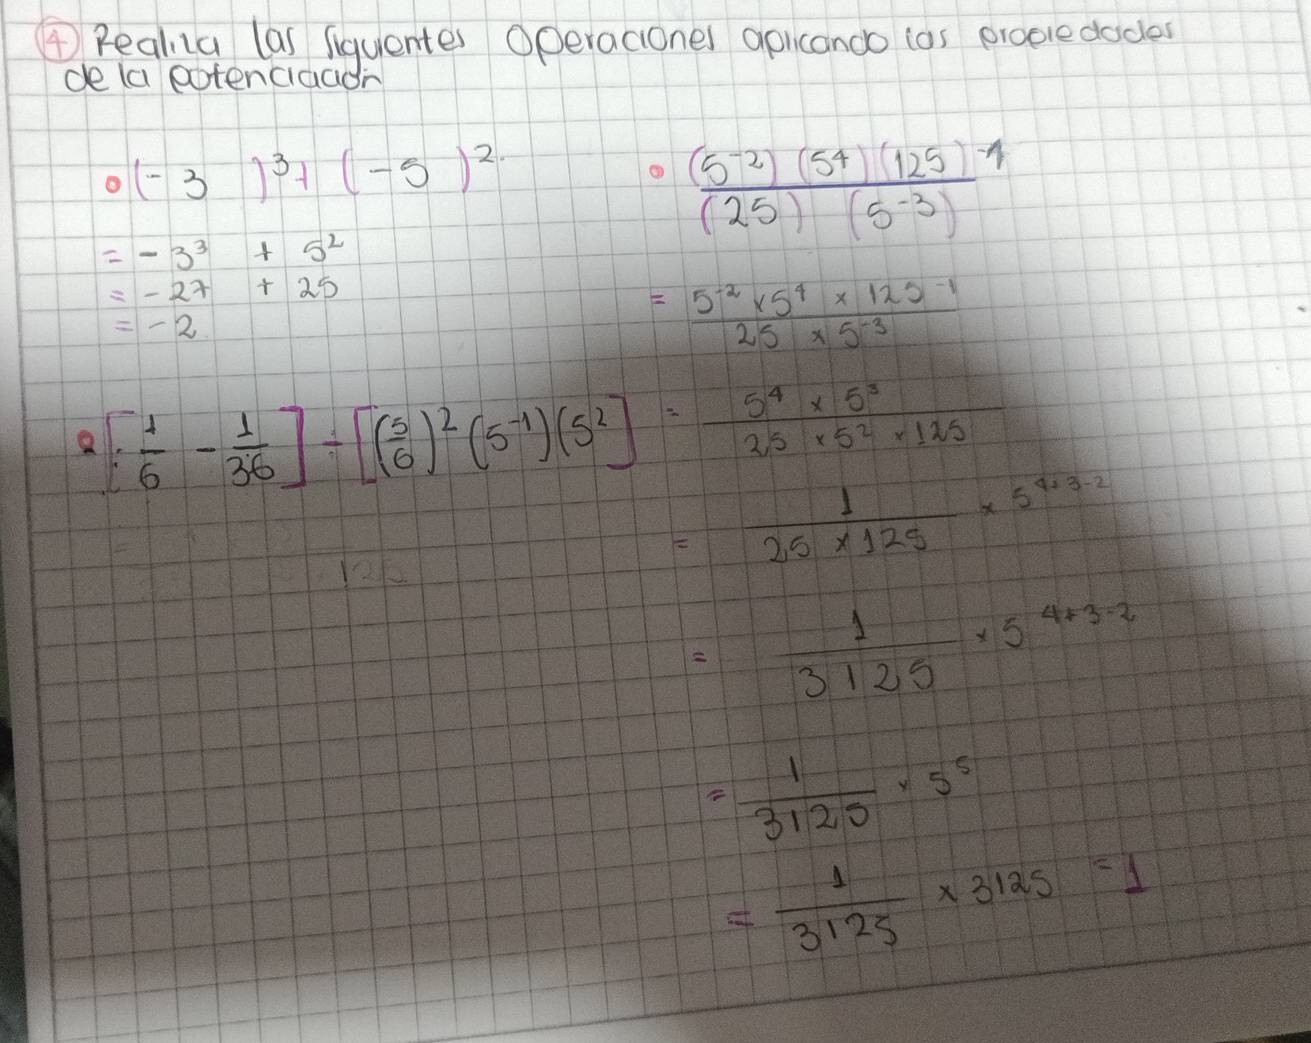 ④ Realiza las siguientes operaciones aplicando las propiedades
de la potenciación
(-3 )³+ (-5 )²
= -3³ + 5²
= -27 + 25
= -2
[1/6 - 1/36] ÷ [(5/6)² (5⁻¹)(5²]
(5⁻²) (5⁴) (125)⁻¹ / (25) (5⁻³)
= 5⁻² × 5⁴ × 125⁻¹ / 25 × 5⁻³
= 5⁴ × 5³ / 25 × 5² × 125
= 1 / 25 × 125 × 5⁴⁺³⁻²
= 1 / 3125 × 5⁴⁺³⁻²
= 1 / 3125 × 5⁵
= 1 / 3125 × 3125 = 1